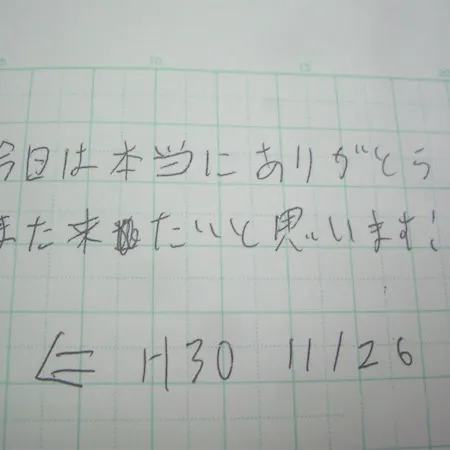 10 15
今日は本当にありがとう
また来たいと思います!
H30 11/26